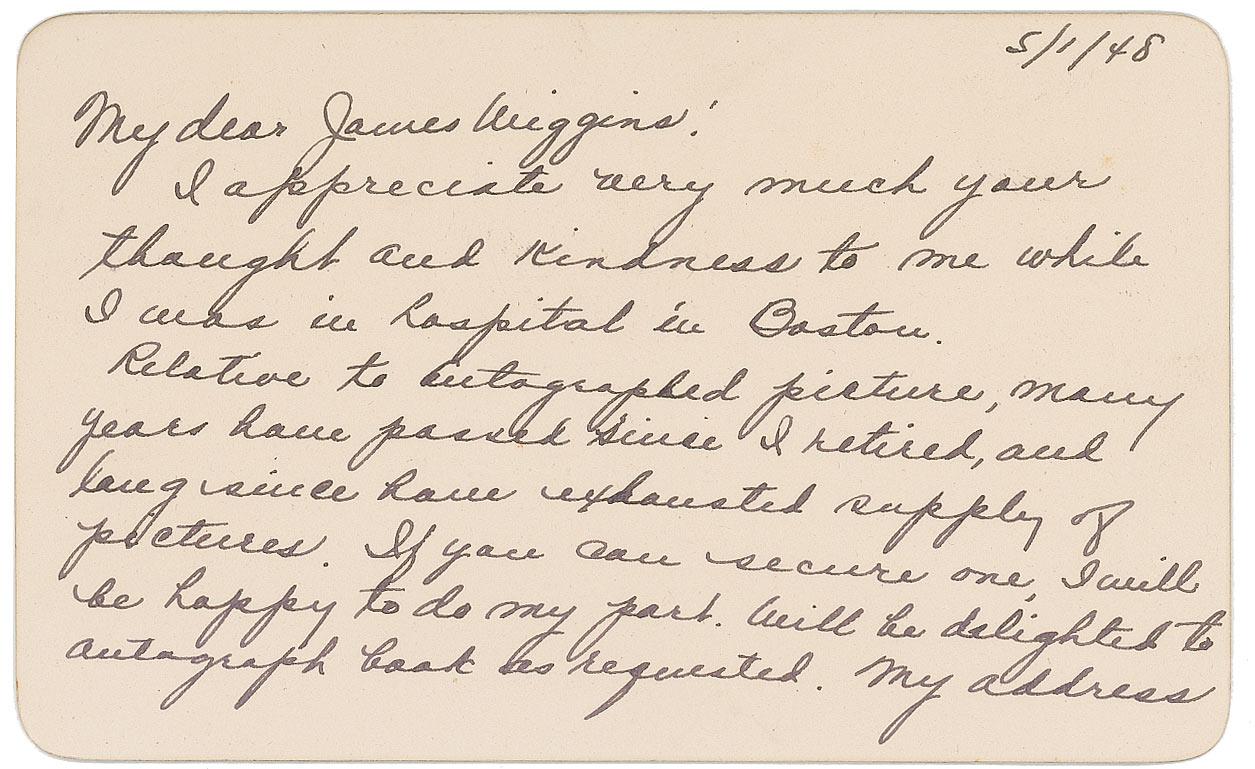 5/1/48
My dear James Wiggins:
I appreciate very much your
thought and kindness to me while
I was in hospital in Boston.
Relative to autographed picture, many
years have passed since I retired, and
long since have exhausted supply of
pictures. If you can secure one, I will
be happy to do my part. Will be delighted to
autograph book as requested. My address